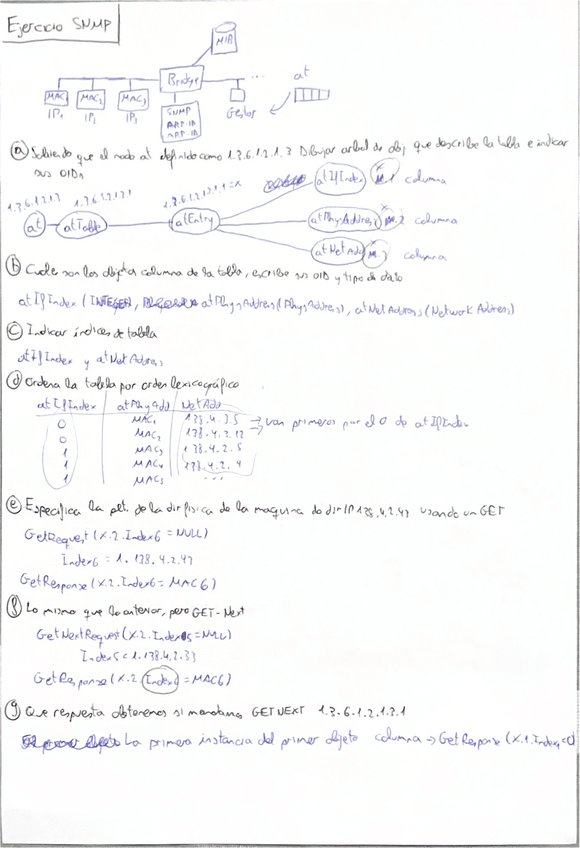 Ejercicio SNMP
MIB
Bridge
...
at
MAC1
MAC2
MAC3
IP1
IP1
IP1
SNMP
Gestor
a) Sabiendo que el nodo at definido como 1.3.6.1.2.1.3 Dibujar arbol de obj que describe la tabla e indicar
sus OIDs
1.3.6.1.2.1.3
1.3.6.1.2.1.3.1
1.3.6.1.2.1.3.1.1=x
at
atTable
atEntry
atIfIndex
.1 columna
atPhysAddress
x.2 columna
atNetAdd
x.3 columna
b) Cuales son los objetos columna de la tabla, escribe su OID y tipo de dato
atIfIndex (INTEGER, atPhysAddress (PhysAddress), atNetAddress (Network Address)
c) Indicar índices de tabla
atIfIndex y atNetAddress
d) Ordena la tabla por orden lexicográfico
atIfIndex atPhyAdd NetAdd
0 MAC1 138.4.3.5 → van primeros por el 0 de atIfIndex
0 MAC2 138.4.2.12
1 MAC3 138.4.2.5
1 MAC4 138.4.2.9
1 MAC5 ...
e) Especifica la peti. de la dir fisica de la maquina de dir IP 138.4.2.47 usando un GET
GetRequest (x.2.Index6 = NULL)
Index6 = 1.138.4.2.47
GetResponse (x.2.Index6 = MAC6)
f) Lo mismo que lo anterior, pero GET-Next
GetNextRequest (x.2.Index5 = NULL)
Index5 = 1.138.4.2.33
GetResponse (x.2.Index6 = MAC6)
g) Que respuesta obtenemos si mandamos GETNEXT 1.3.6.1.2.1.3.1
La primera instancia del primer objeto columna → GetResponse (x.1.Index1=0